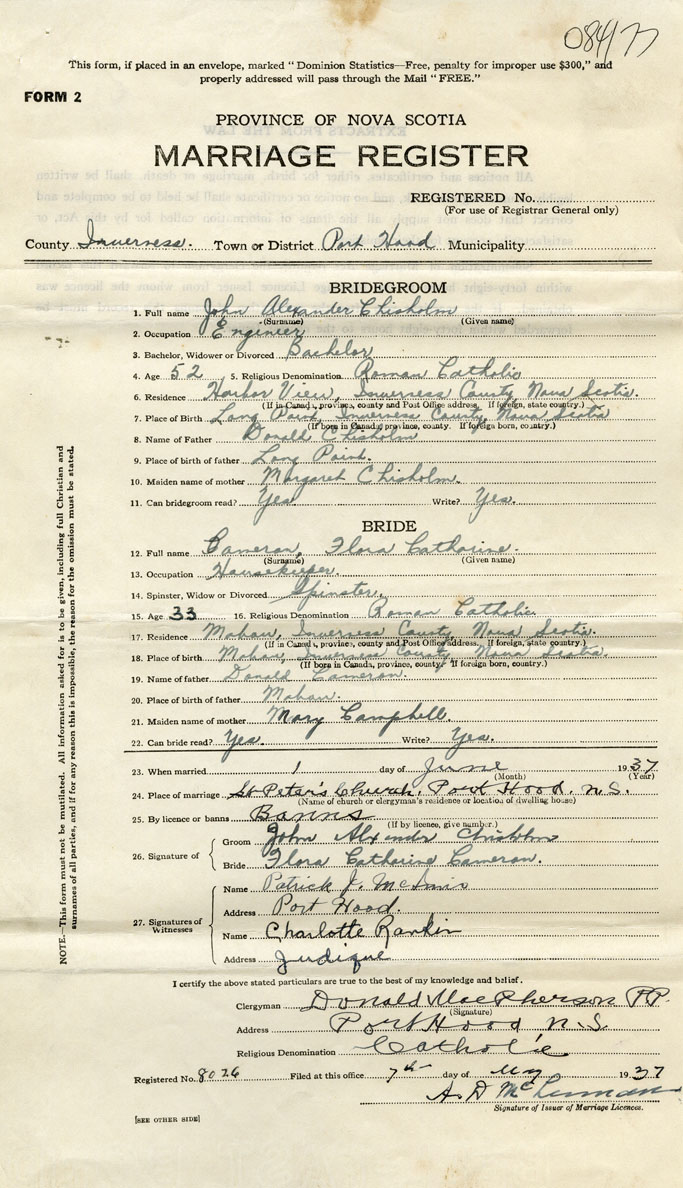 084177
This form, if placed in an envelope, marked "Dominion Statistics—Free, penalty for improper use $300," and
properly addressed will pass through the Mail "FREE."
FORM 2
PROVINCE OF NOVA SCOTIA
MARRIAGE REGISTER
REGISTERED No.
(For use of Registrar General only)
County Inverness. Town or District Port Hood Municipality
BRIDEGROOM
1. Full name John Alexander Chisholm
(Surname) (Given name)
2. Occupation Engineer
3. Bachelor, Widower or Divorced Bachelor
4. Age 52 5. Religious Denomination Roman Catholic
6. Residence Harbor View, Inverness County, Nova Scotia.
(If in Canada, province, county and Post Office address. If foreign, state country.)
7. Place of Birth Long Point, Inverness County, Nova Scotia
(If born in Canada, province, county. If foreign born, country.)
8. Name of Father Donald Chisholm
9. Place of birth of father Long Point.
10. Maiden name of mother Margaret Chisholm.
11. Can bridegroom read? Yes. Write? Yes.
BRIDE
12. Full name Cameron, Flora Catharine.
(Surname) (Given name)
13. Occupation Housekeeper.
14. Spinster, Widow or Divorced Spinster.
15. Age 33 16. Religious Denomination Roman Catholic
17. Residence Mabou, Inverness County, Nova Scotia.
(If in Canada, province, county and Post Office address. If foreign, state country.)
18. Place of birth Mabou, Inverness County, Nova Scotia.
(If born in Canada, province, county. If foreign born, country.)
19. Name of father Donald Cameron.
20. Place of birth of father Mabou.
21. Maiden name of mother Mary Campbell.
22. Can bride read? Yes. Write? Yes.
23. When married 1 day of June 1937
(Month) (Year)
24. Place of marriage St Peter's Church, Port Hood, N.S.
(Name of church or clergyman's residence or location of dwelling house)
25. By licence or banns Banns
(If by licence, give number.)
26. Signature of
Groom John Alexander Chisholm
Bride Flora Catharine Cameron.
27. Signatures of Witnesses
Name Patrick J. McInnis
Address Port Hood.
Name Charlotte Rankin
Address Judique
I certify the above stated particulars are true to the best of my knowledge and belief.
Clergyman Donald MacPherson P.P.
(Signature)
Address Port Hood N.S.
Religious Denomination Catholic
Registered No. 8026 Filed at this office 7th day of 1937
A. D.
Signature of Issuer of Marriage Licences.
[SEE OTHER SIDE]
NOTE.—This form must not be mutilated. All information asked for is to be given, including full Christian and
surnames of all parties, and if for any reason this is impossible, the reason for the omission must be stated.